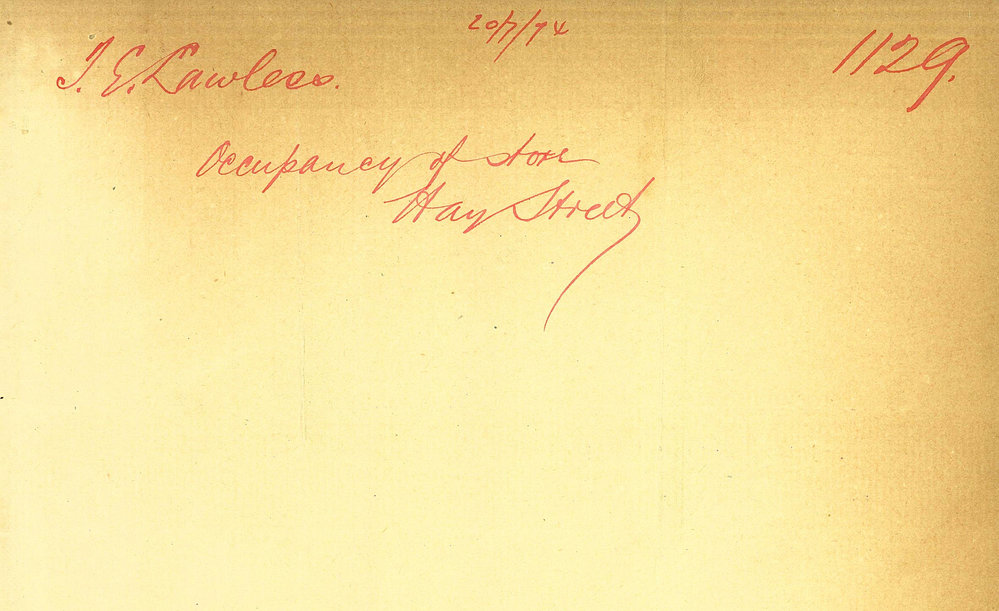 20/7/14
T. E. Lawless.
1129.
Occupancy of store
Hay Street